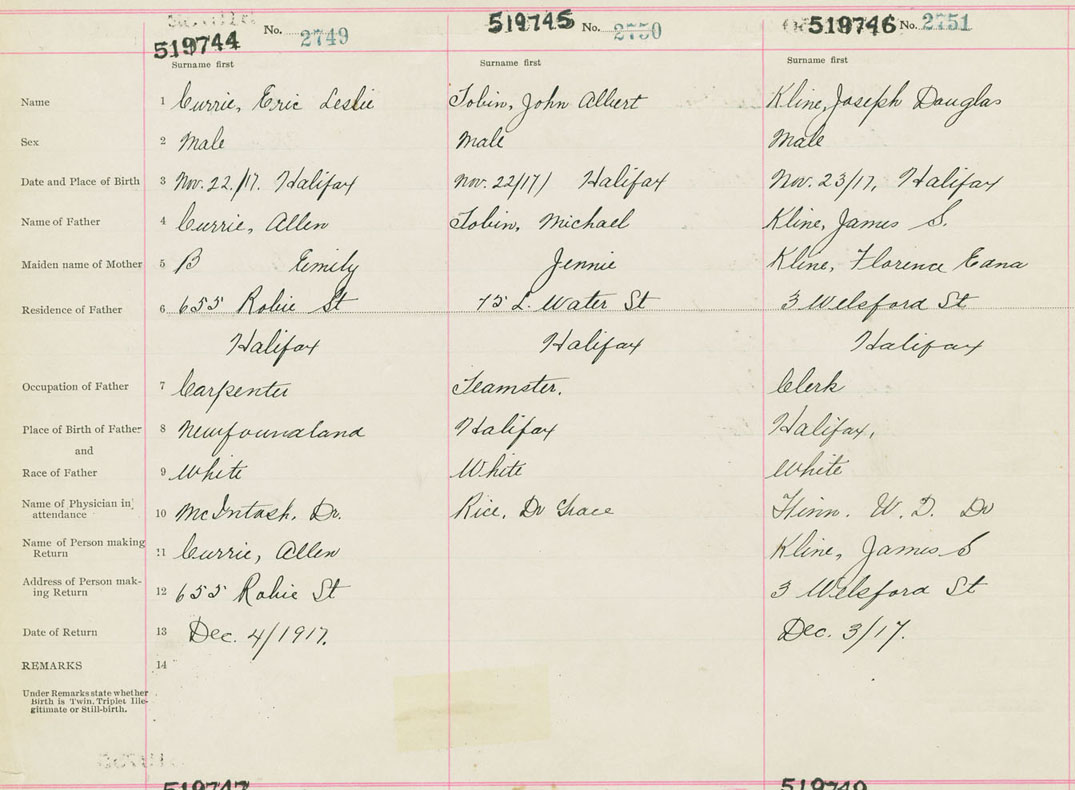 519744 No. 2749 519745 No. 2750 519746 No. 2751
Surname first Surname first Surname first
Name 1 Currie, Eric Leslie Tobin, John Albert Kline, Joseph Douglas
Sex 2 Male Male Male
Date and Place of Birth 3 Nov. 22./17. Halifax Nov. 22/17/ Halifax Nov. 23/17, Halifax
Name of Father 4 Currie, Allen Tobin, Michael Kline, James S.
Maiden name of Mother 5 B Emily Jennie Kline, Florence Edna
Residence of Father 6 655 Robie St 75 L. Water St 3 Welsford St
Halifax Halifax Halifax
Occupation of Father 7 Carpenter Teamster. Clerk
Place of Birth of Father 8 Newfoundland Halifax Halifax,
and
Race of Father 9 White White White
Name of Physician in attendance 10 McIntosh, Dr. Rice, Dr Grace Finn. W. D. Dr
Name of Person making Return 11 Currie, Allen Kline, James S
Address of Person mak-ing Return 12 655 Robie St 3 Welsford St
Date of Return 13 Dec. 4/1917. Dec. 3/17.
REMARKS 14
Under Remarks state whether
Birth is Twin, Triplet Ille-
gitimate or Still-birth.
519747 519749